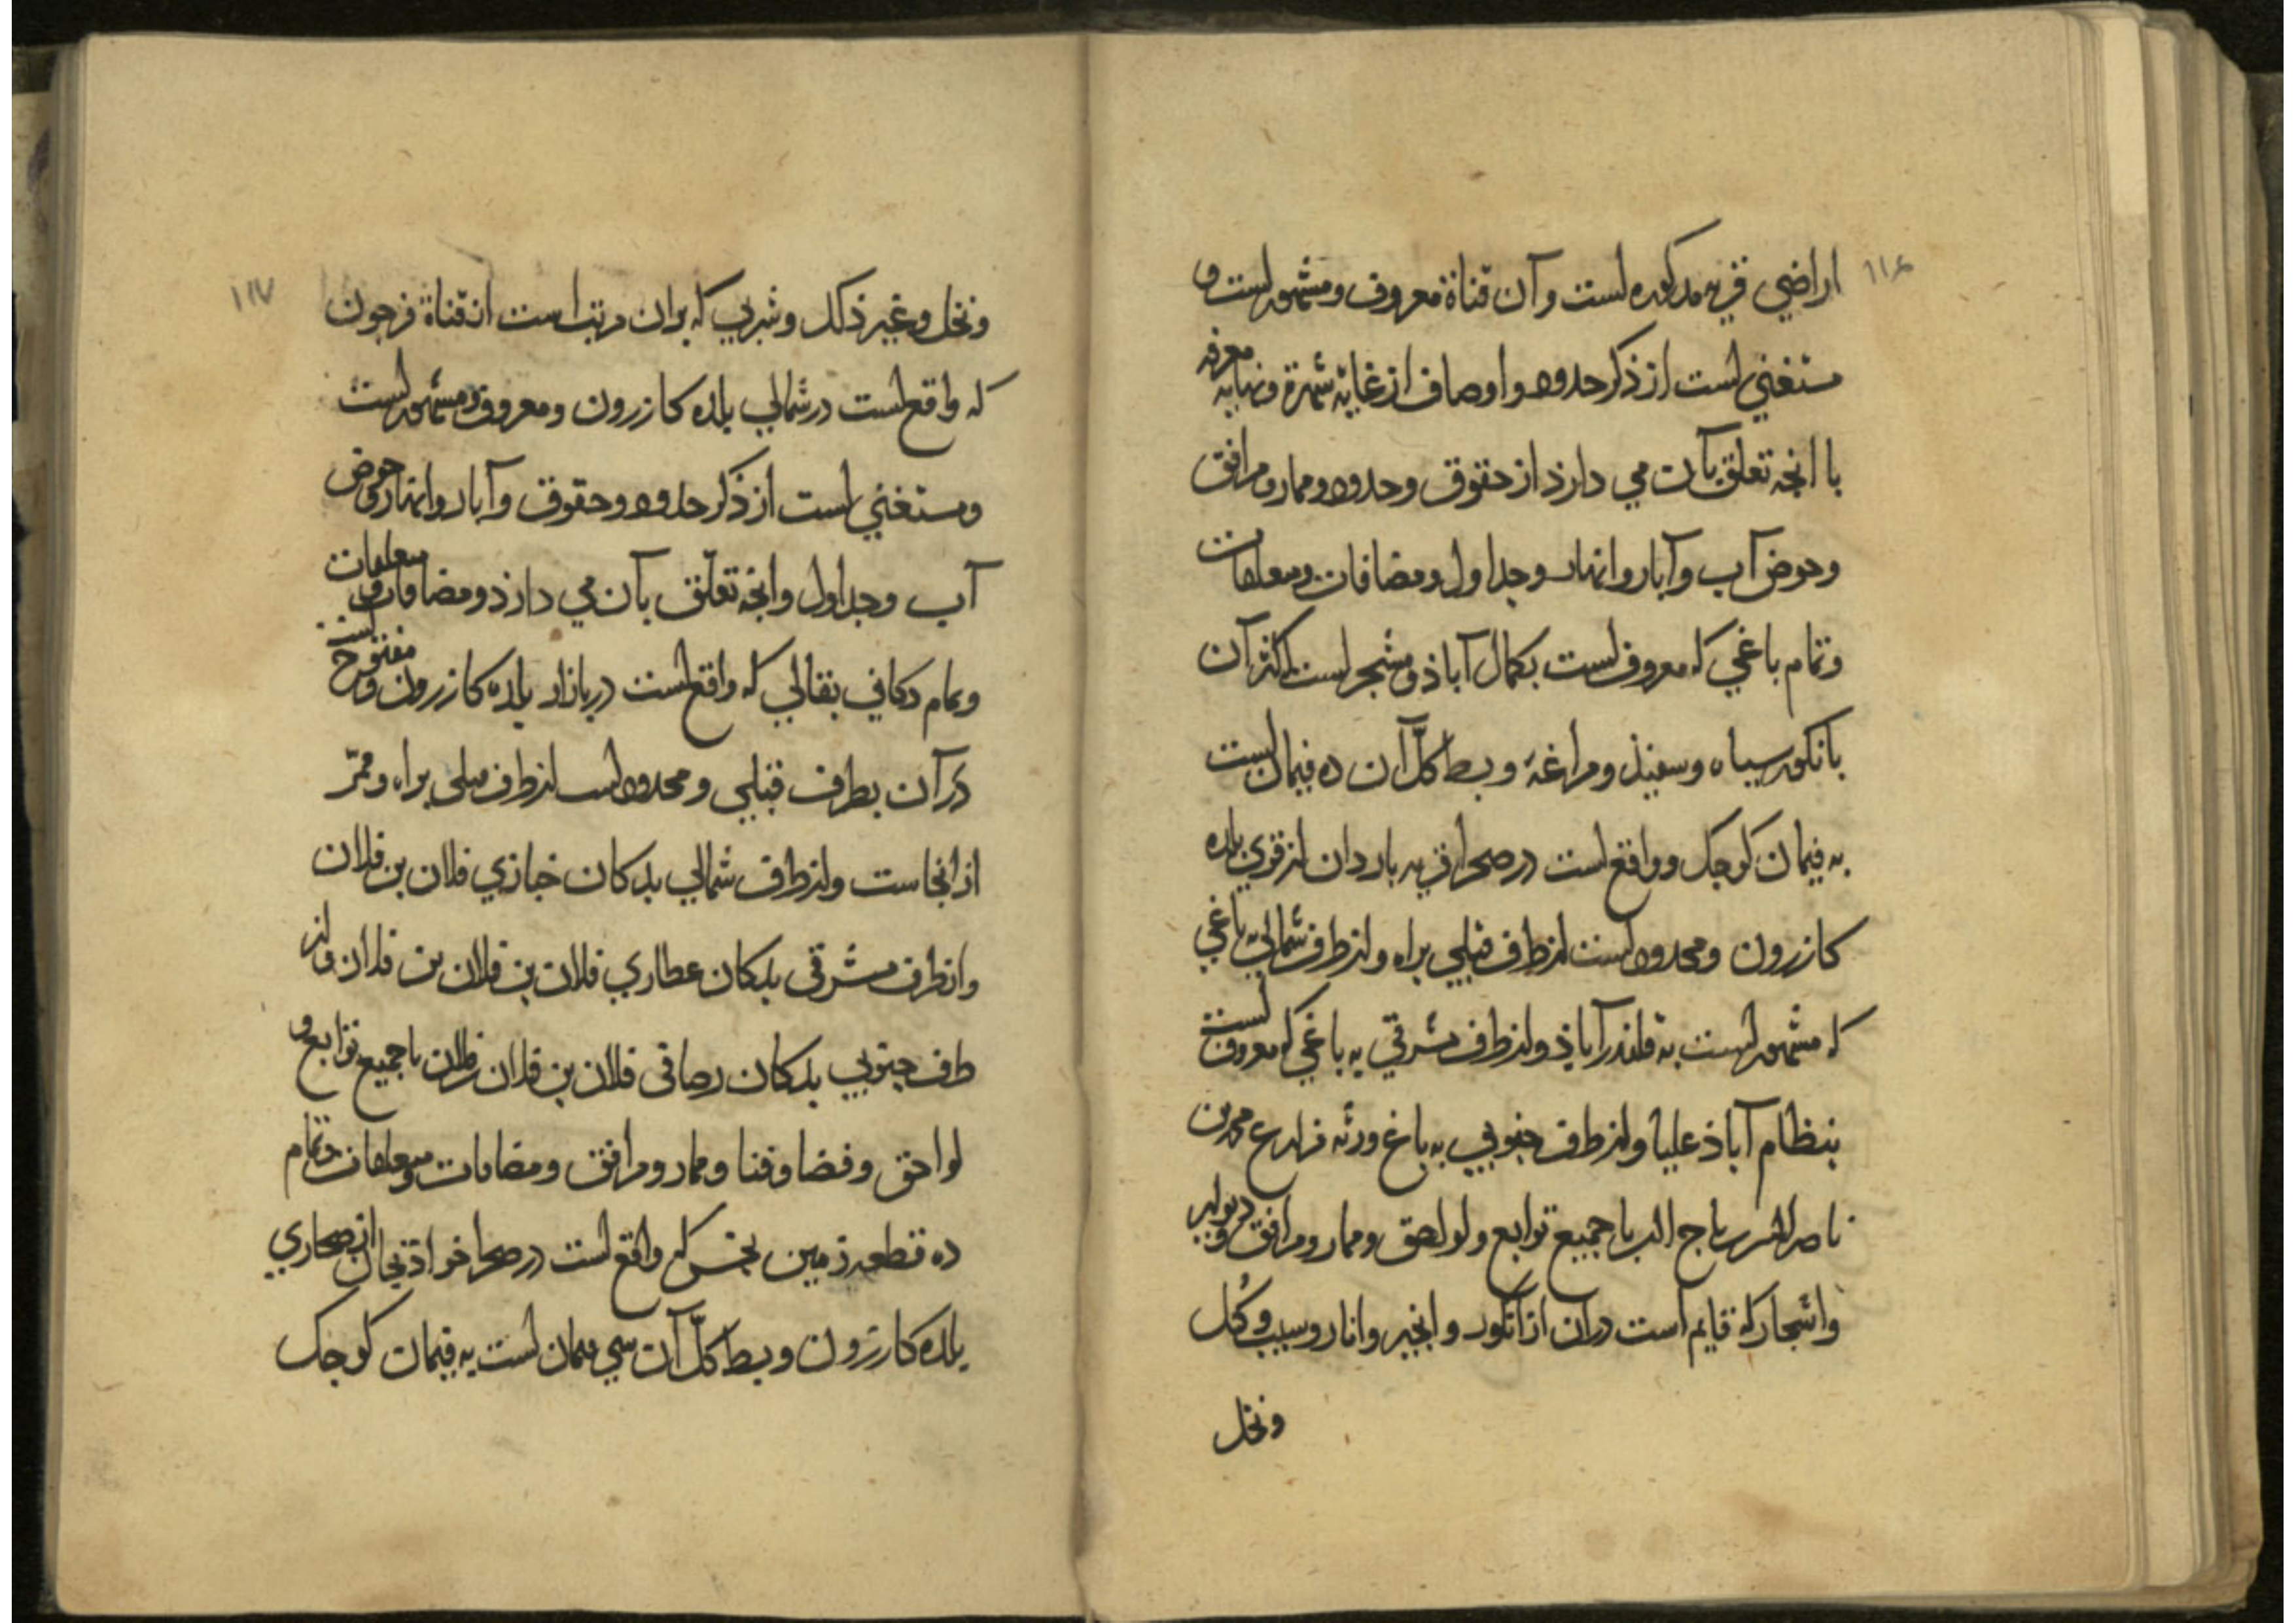 ١١٦
اراضي قريه مذكوره است و آن قناة معروف و مشهور است و
مستغني است از ذكر حدود و اوصاف از غاية شهرة و نهاية معرفه
با انجه تعلق بآن مي دارذ از حقوق و حدود و ممار و مرافق
و حوض آب و آبار و انهار و جداول و مضافات و متعلقات
و تمام باغي كه معروف است بكمال آباذ و مشجر است اكثر آن
بانكور سياه و سفيذ و مراغة و بسط كلّ آن ده فيمان است
به فيمان كوجك و واقع است در صحرا قريه باردان از قري بلده
كازرون و محدود است از طرف قبلي براه و از طرف شمالي به باغي
كه مشهور است به قلندرآباذ و از طرف مشرقي به باغي كه معروف است
بنظام آباذ عليا و از طرف جنوبي به باغ ورثه محمد بن
ناصر با جميع توابع و لواحق و ممار و مرافق و ديوار
و اشجار كه قايم است دران از انكور و انجير و انار و سيب و كُل
و نخل
١١٧
و نخل و غير ذلك و شربي كه بران مرتب است از قناة فرجون
كه واقع است در شمالي بلده كازرون و معروف و مشهور است
و مستغني است از ذكر حدود و حقوق و آبار و انهار و حوض
آب و جداول و انجه تعلّق بآن مي دارذ و مضافات و متعلقات
و تمام دكاني بقالي كه واقع است در بازار بلده كازرون و مفتوح است
دَر آن بطرف قبلي و محدود است از طرف قبلي براه و ممرّ
از انجاست و از طرف شمالي بدكان خبازي فلان بن فلان
و از طرف مشرقي بدكان عطاري فلان بن فلان بن فلان و از
طرف جنوبي بدكان فلان بن فلان بن فلان با جميع توابع و
لواحق و فضا و فنا و ممار و مرافق و مضافات و متعلقات و تمام
ده قطعه زمين كه واقع است در صحرا از صحاري
بلده كازرون و بسط كلّ آن سي فيمان است به فيمان كوجك